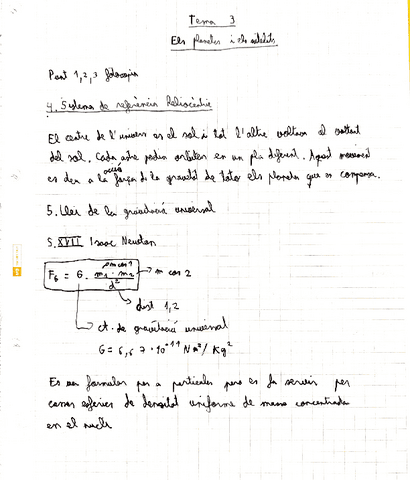 Tema 3
Els planetes i els satèl·lits
Punt 1, 2, 3 fotocopia
4. Sistema de referència Heliocèntric
El centre de l'univers es el sol i tot l'altre voltava al voltant
del sol. Cada astre podia orbitar en un pla diferent. Aquest moviment
acció
es deu a la força de la gravetat de tots els planetes que es compensa.
5. Llei de la gravitació universal
S. XVII Isaac Newton
m cos 1
F_G = G · m1 · m2 / d² → m cos 2
dist 1,2
ct. de gravitació universal
G = 6,67 · 10^-11 N m²/Kg²
Es una formula per a particules pero es fa servir per
cossos esfèrics de densitat uniforme de massa concentrada
en el nucli